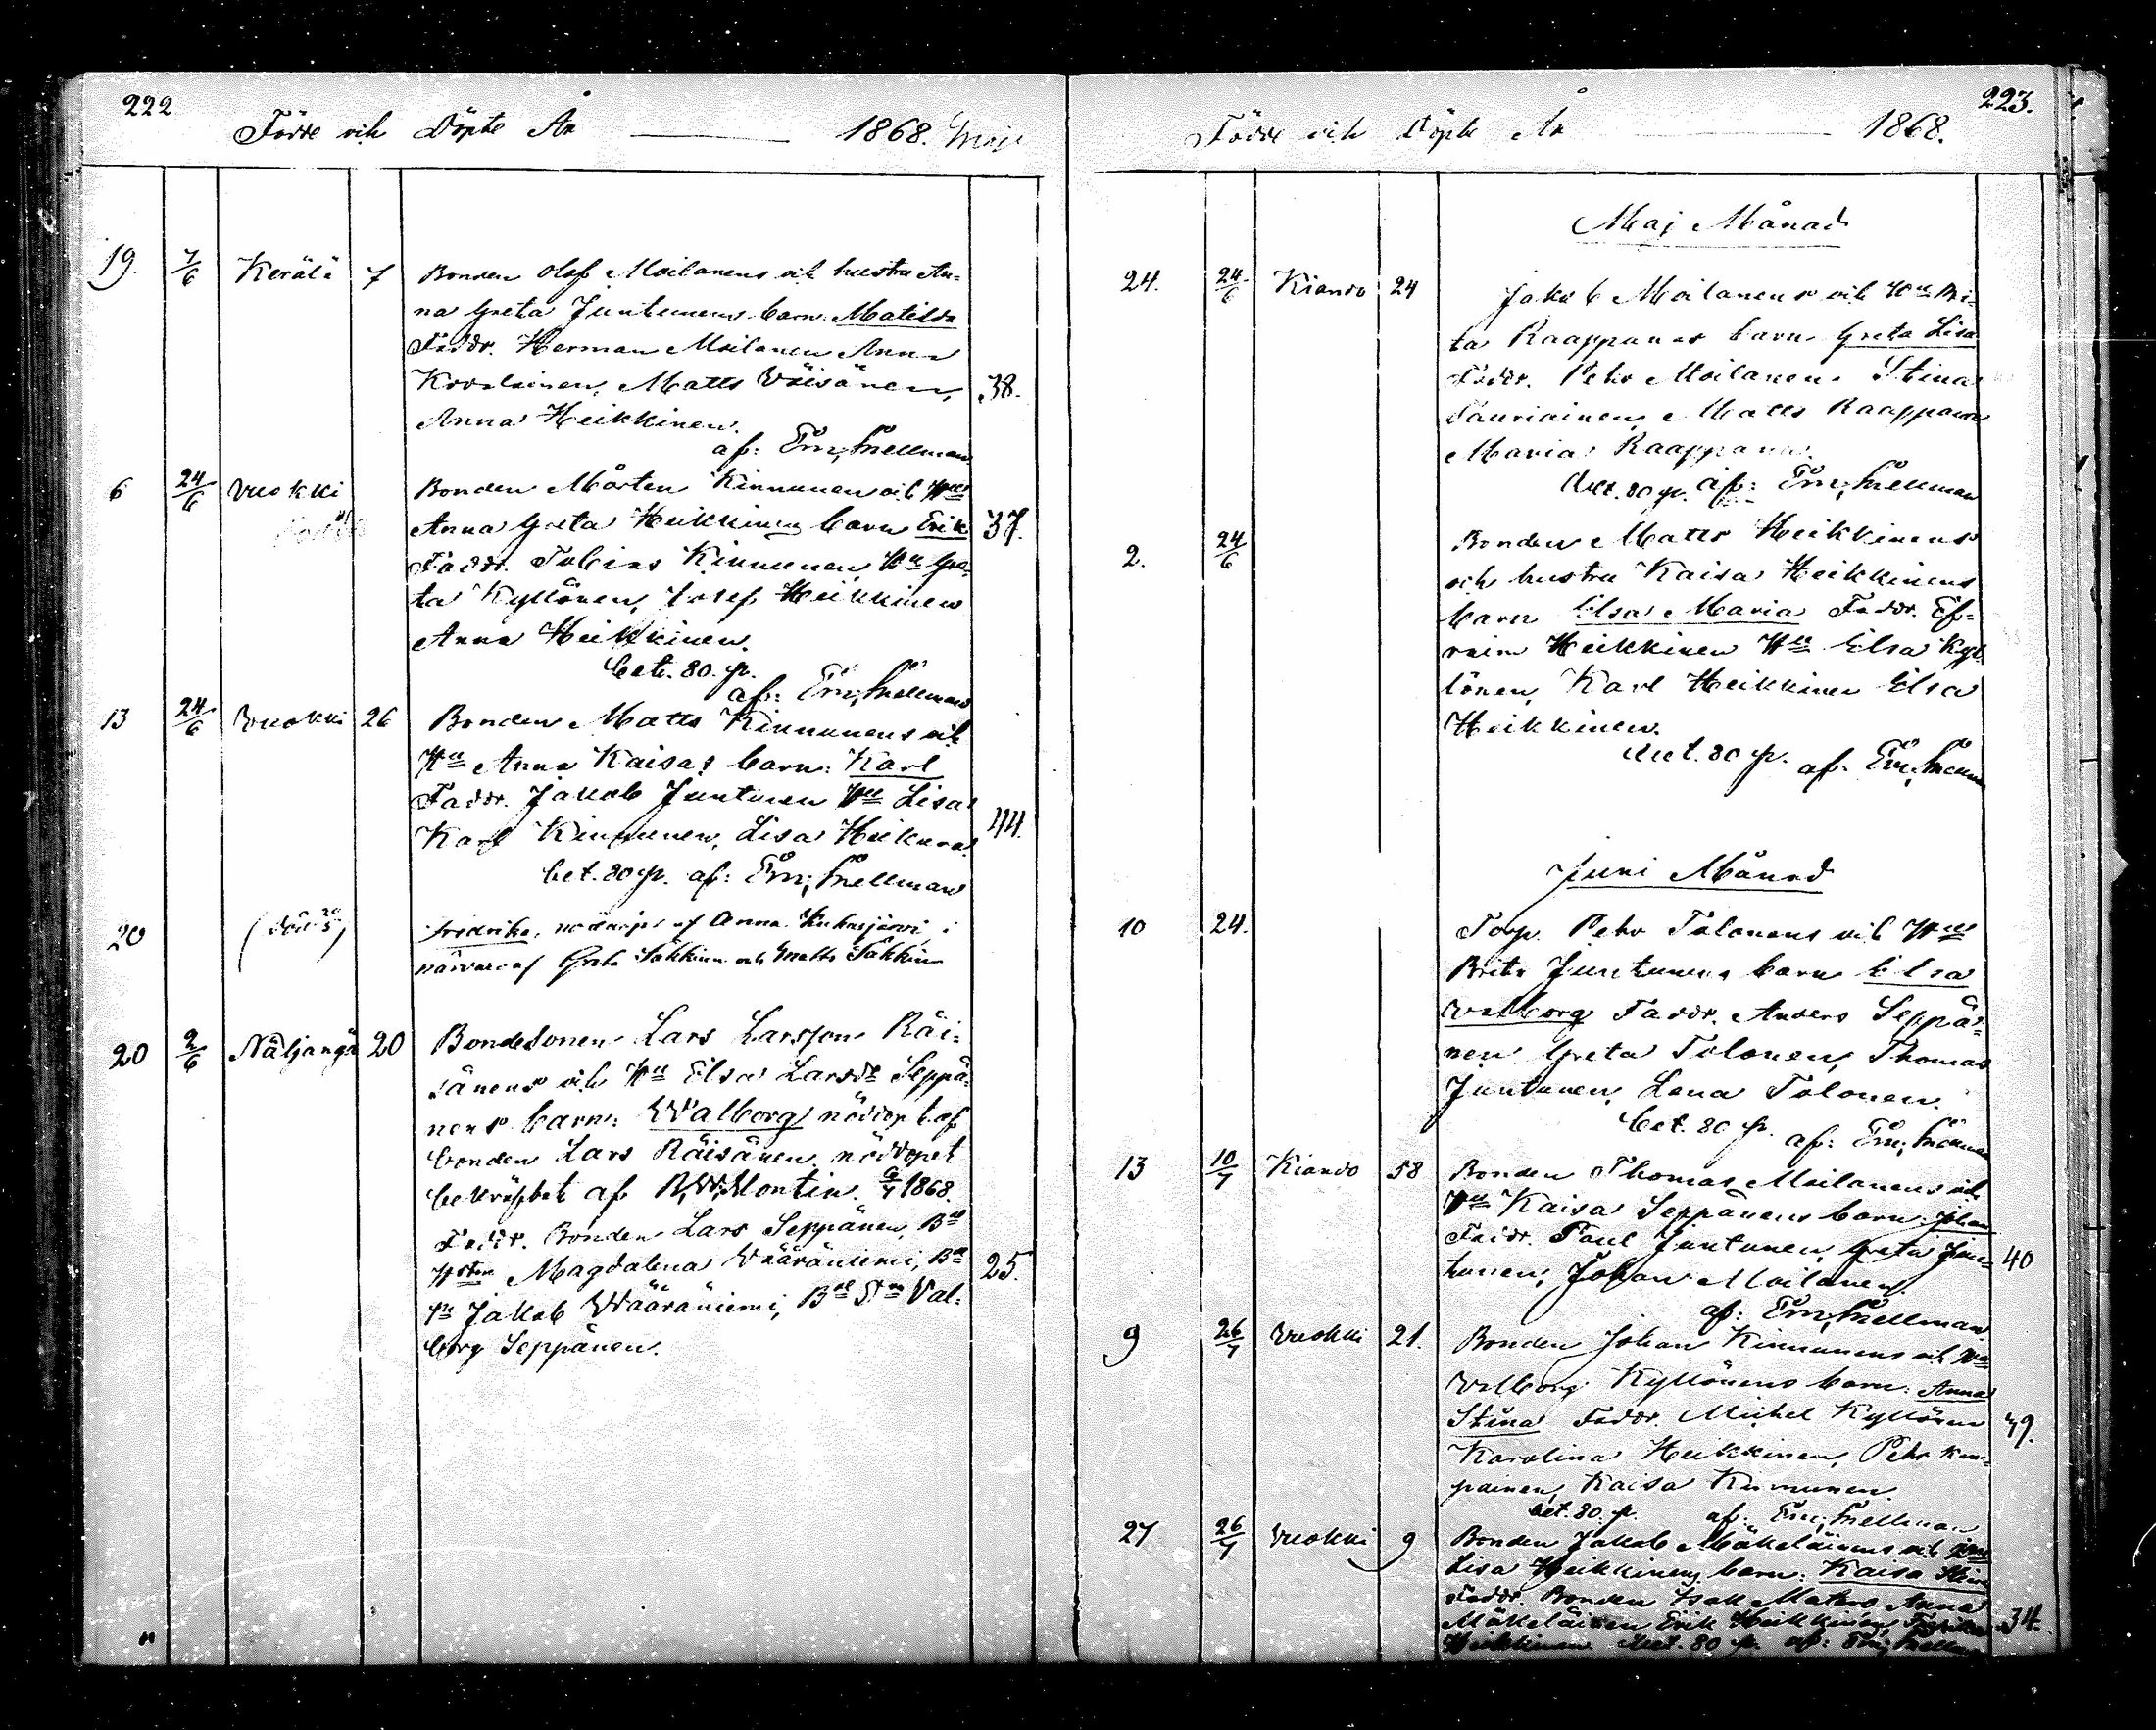 222
Födde och Döpte År 1868. Maji
19. 7/6 Kerälä 7 Bonden Olof Moilanens och hustru An-
na Greta Juntunens barn: Matilda
Faddr. Herman Moilanen Anna
Kovalainen, Matts Väisänen, 38.
Anna Heikkinen.
af: Em; Snellman
6 24/6 Vuokki Bonden Mårten Kinnunen och Hu
Anna Greta Heikkinens barn Erik 37.
Faddr. Tobias Kinnunen Hu Gre-
ta Kyllönen, Josef Heikkinen
Anna Heikkinen.
bet. 80. p.
af: Em; Snellman
13 24/6 Vuokki 26 Bonden Matts Kinnunens och
Hu Anna Kaisas barn: Karl
Faddr. Jakob Juntunen Hu Lisa
Karl Kinnunen, Lisa Heikura 44.
bet. 80 p. af: Em; Snellman
20 Fredrika, af Anna i
närvaro af Greta och Matts
20 2/6 Näljangä 20 Bondesonen Lars Larsson Räi-
sänens och Hu Elsa Larsdr Seppä-
nens barn: Walborg nöddöpt af
bonden Lars Räisänen nöddopet
bekräftat af 1868.
Faddr. Bonden Lars Seppänen, Bd
Hstm Magdalena Wääräniemi, Bd 25.
sn Jakob Wääräniemi, Bd Dn Val-
borg Seppänen.
223.
Födde och Döpte År 1868.
Maj Månad
24. 24/6 Kiando 24 Jakob Moilanens och Hu Bri-
ta Raappanas barn Greta Lisa
Faddr. Pehr Moilanen Stina
Tauriainen, Matts Raappana
Maria Raappana.
bet. 80 p. af: Em; Snellman
2. 24/6 Bonden Matts Heikkinens
och hustru Kaisa Heikkinens
barn Elsa Maria Faddr. Ef-
raim Heikkinen Hu Elsa Kyl-
lönen, Karl Heikkinen Elsa
Heikkinen.
bet. 80 p. af: Em; Snellman
Juni Månad
10 24. Torp. Pehr Tolonens och Hu
Brita Juntunens barn Elsa
Walborg Faddr. Anders Seppä-
nen Greta Tolonen, Thomas
Juntunen, Lena Tolonen.
bet. 80 p. af: Em; Snellman
13 10/7 Kiando 58 Bonden Thomas Moilanens och
Hu Kaisa Seppänens barn: Johan
Faddr. Paul Juntunen, Greta Jun- 40
tunen, Johan Moilanen.
af: Em; Snellman
9 26/7 Vuokki 21. Bonden Johan Kinnunens och Hu
Valborg Kyllönens barn: Anna
Stina Faddr. Michel Kyllönen 49.
Karolina Heikkinen, Pehr Kem-
painen, Kaisa Kinnunen.
bet. 80. p. af: Em; Snellman
27 26/7 Vuokki 9 Bonden Jakob Mäkeläinens och Hu
Lisa Heikkinens barn: Kaisa Stina
Faddr. Bonden Isak Matero Anna
Mäkeläinen Erik Heikkinen 34.
Heikkinen bet. 80 p. af: Em; Snellman